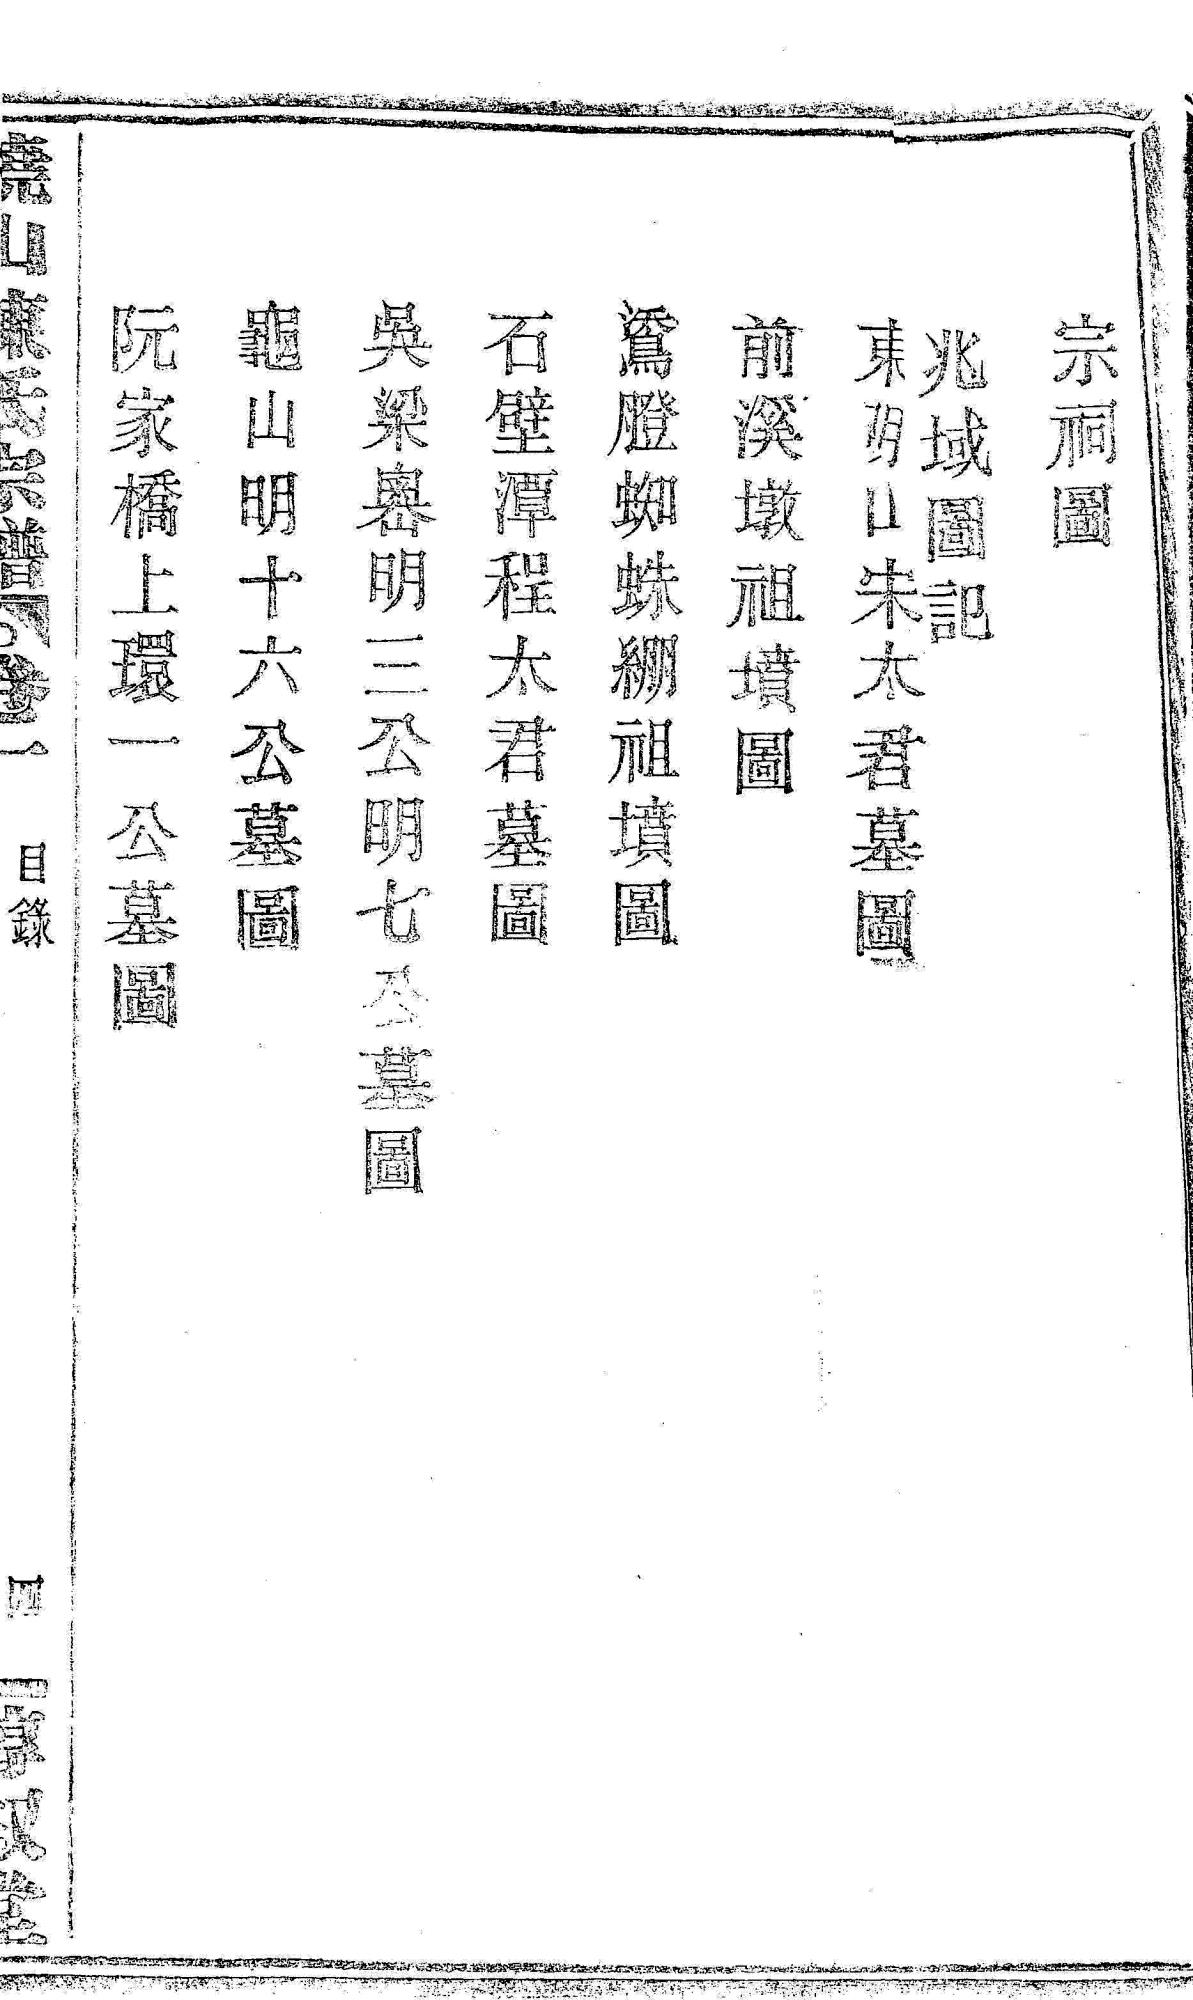 宗祠圖
兆域圖記
東明山朱太君墓圖
前溪墩祖墳圖
鴛膯蜘蛛綳祖墳圖
石壁潭程太君墓圖
吳梁嶴明三公明七公墓圖
龜山明十六公墓圖
阮家橋上環一公墓圖
山陳氏宗譜 卷一 目錄 四 敘堂